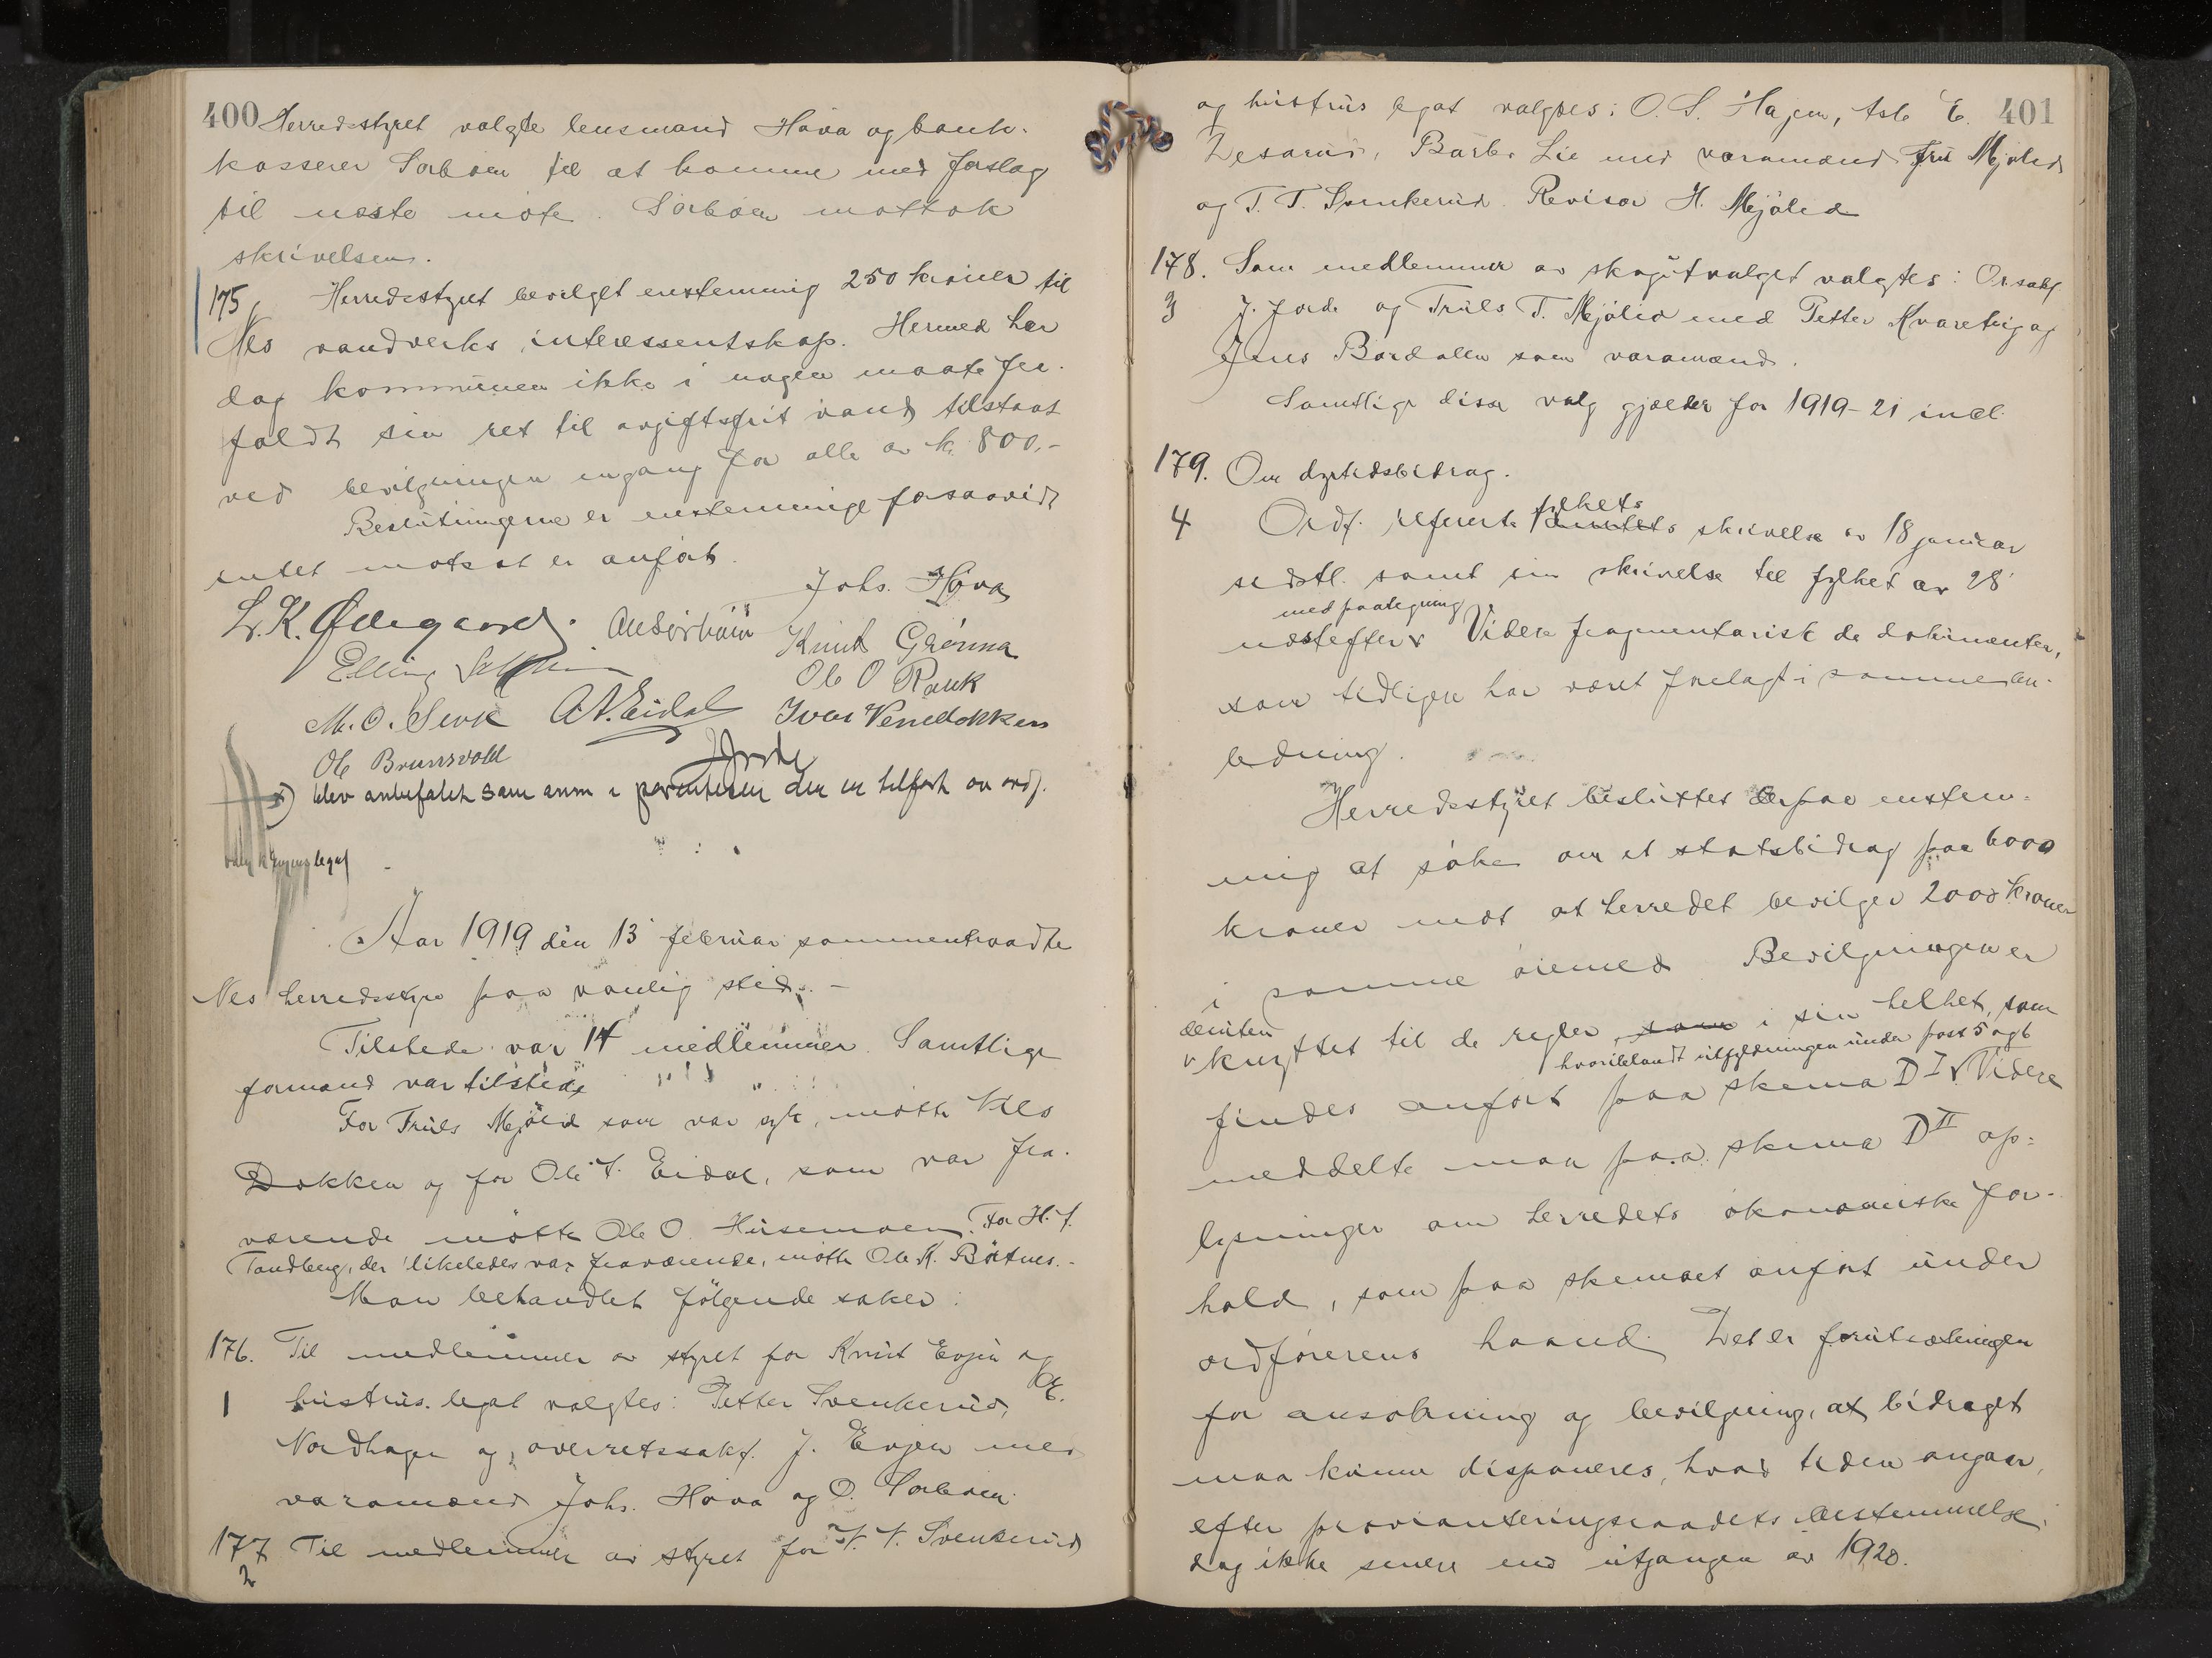 400 Herredsstyret valgte lensmand Hova og bank-
kasserer Sorbøen til at komme med forslag
til næste møte. Sorbøen mottok
skrivelsen.
175, Herredsstyret bevilget enstemmig 250 kroner til
Nes vandverks interessentskap. Hermed har
dog kommunen ikke i nogen maate fra-
faldt sin ret til avgiftsfrit vand tilstaat
ved bevilgningen engang for alle av kr. 800,-
Beslutningerne er enstemmige forsaavidt
intet motsat er anført.
Johs. Hova
L. K. Ødegaard. Knut Grønna
Elling
Ole O Rauk
M. O. Svik A. N. Eidal Ivar Venelokken
Ole Brunsvold J Jorde
x) blev anbefalet som anm i parentesen der er tilført av ordf.
Aar 1919 den 13 februar sammentraadte
Nes herredsstyre paa vanlig sted. -
Tilstede var 14 medlemmer. Samtlige
formænd var tilstede
For Truls Mjølid som var syk, møtte Nils
Dokken og for Ole T. Eidal, som var fra-
værende møtte Ole O. Husemoen. For H. T.
Tandberg, der likeledes var fraværende, møtte Ole K. Bøtnes. -
Man behandlet følgende saker:
176. Til medlemmer av styret for Knut Evjen og
1 hustrus legat valgtes: Petter Svenkerud, E.
Nordhagen og overretssakf. J. Evjen med
varamænd Johs. Hova og O. Sorbøen.
177 Til medlemmer av styret for T. T. Svenkerud
2
og hustrus legat valgtes: O. S. Hagen, E. 401
Lie med varamænd fru Mjølid
og T. T. Svenkerud. Revisor H. Mjølid
178. Som medlemmer av skogutvalget valgtes: O.r.sakf.
3 J. Jorde og Truls T. Mjølid med Petter Kvarteig og
Jens Bardallen som varamænd.
Samtlige disse valg gjælder for 1919-21 incl.
179. Om dyrtidsbidrag.
fylkets
4 Ordf. refererte amtets skrivelse av 18 januar
sidstl. samt sin skrivelse til fylket av 28
med paategning
næstefter v Videre fragmentarisk de dokumenter,
som tidligere har været forelagt i sammen-
ledning.
Herredsstyret besluttet derpaa enstem-
mig at søke om et statsbidrag paa 6000
kroner mot at herredet bevilger 2000 kroner
i samme øiemed. Bevilgningen er
desuten
v knyttet til de regler, som i sin helhet, som
hvoriblandt utfyldningen under post 5 og 6
findes anført paa skema D I v Videre
meddelte man paa skema D II op-
lysninger om herredets økonomiske for-
hold, som paa skemaet anført under
ordførerens haand. Det er forutsætningen
for ansøkning og bevilgning, at bidraget
maa kunne disponeres, hvad tiden angaar,
efter provianteringsraadets bestemmelse,
dog ikke senere end utgangen av 1920.